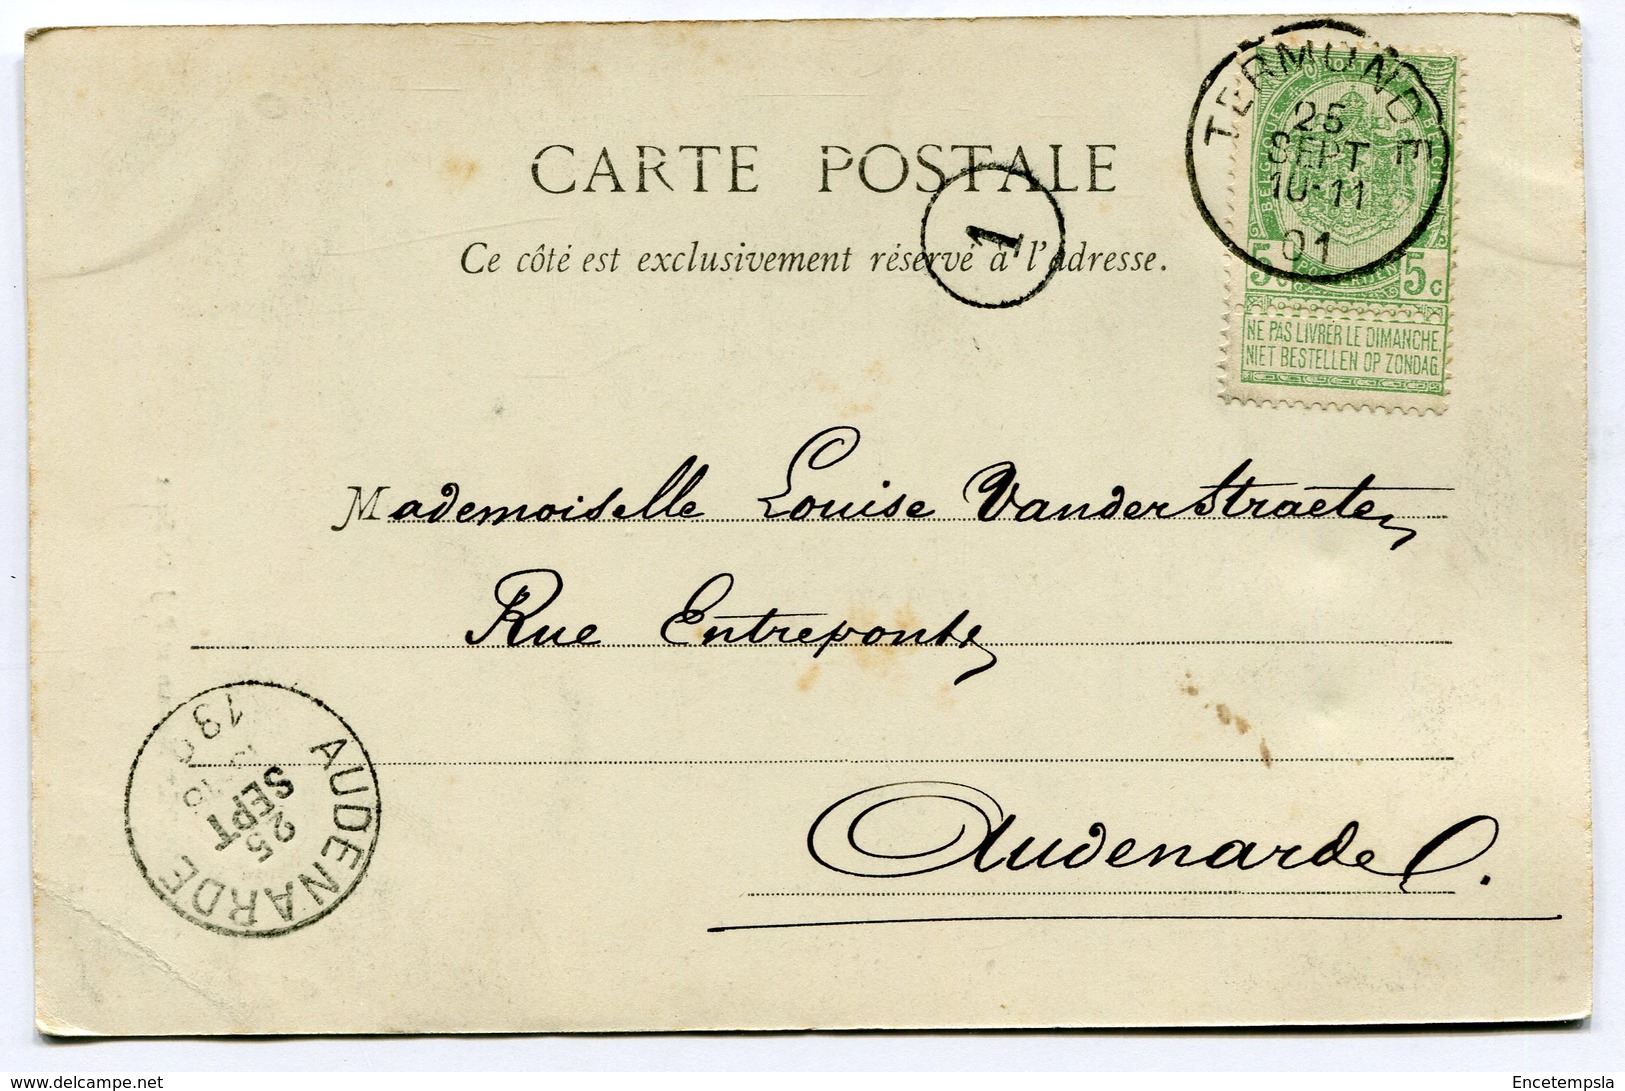 CARTE POSTALE
Ce côté est exclusivement réservé à l'adresse.
1
TERMONDE
25
SEPT
10-11
01
BELGIQUE
BELGIË
5c
POSTERIJEN
5c
NE PAS LIVRER LE DIMANCHE.
NIET BESTELLEN OP ZONDAG.
Mademoiselle Louise VanderStraeten
Rue Entreponts
Audenarde.
AUDENARDE
25
SEPT
delcampe.net
Encetempsla